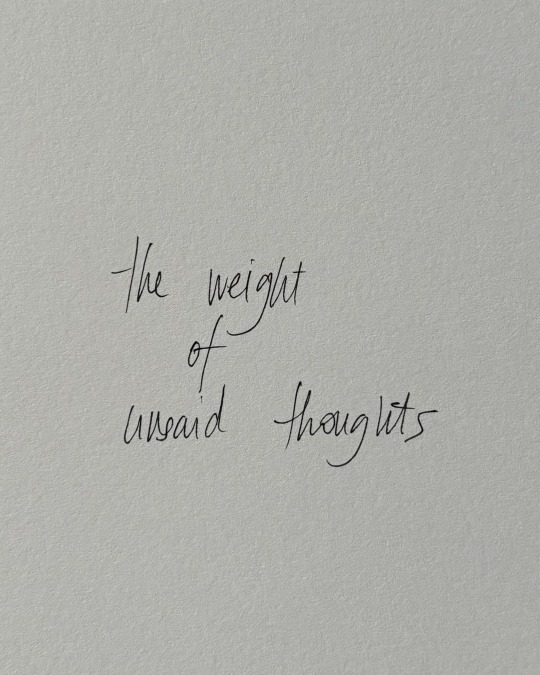 the weight
of
unsaid thoughts